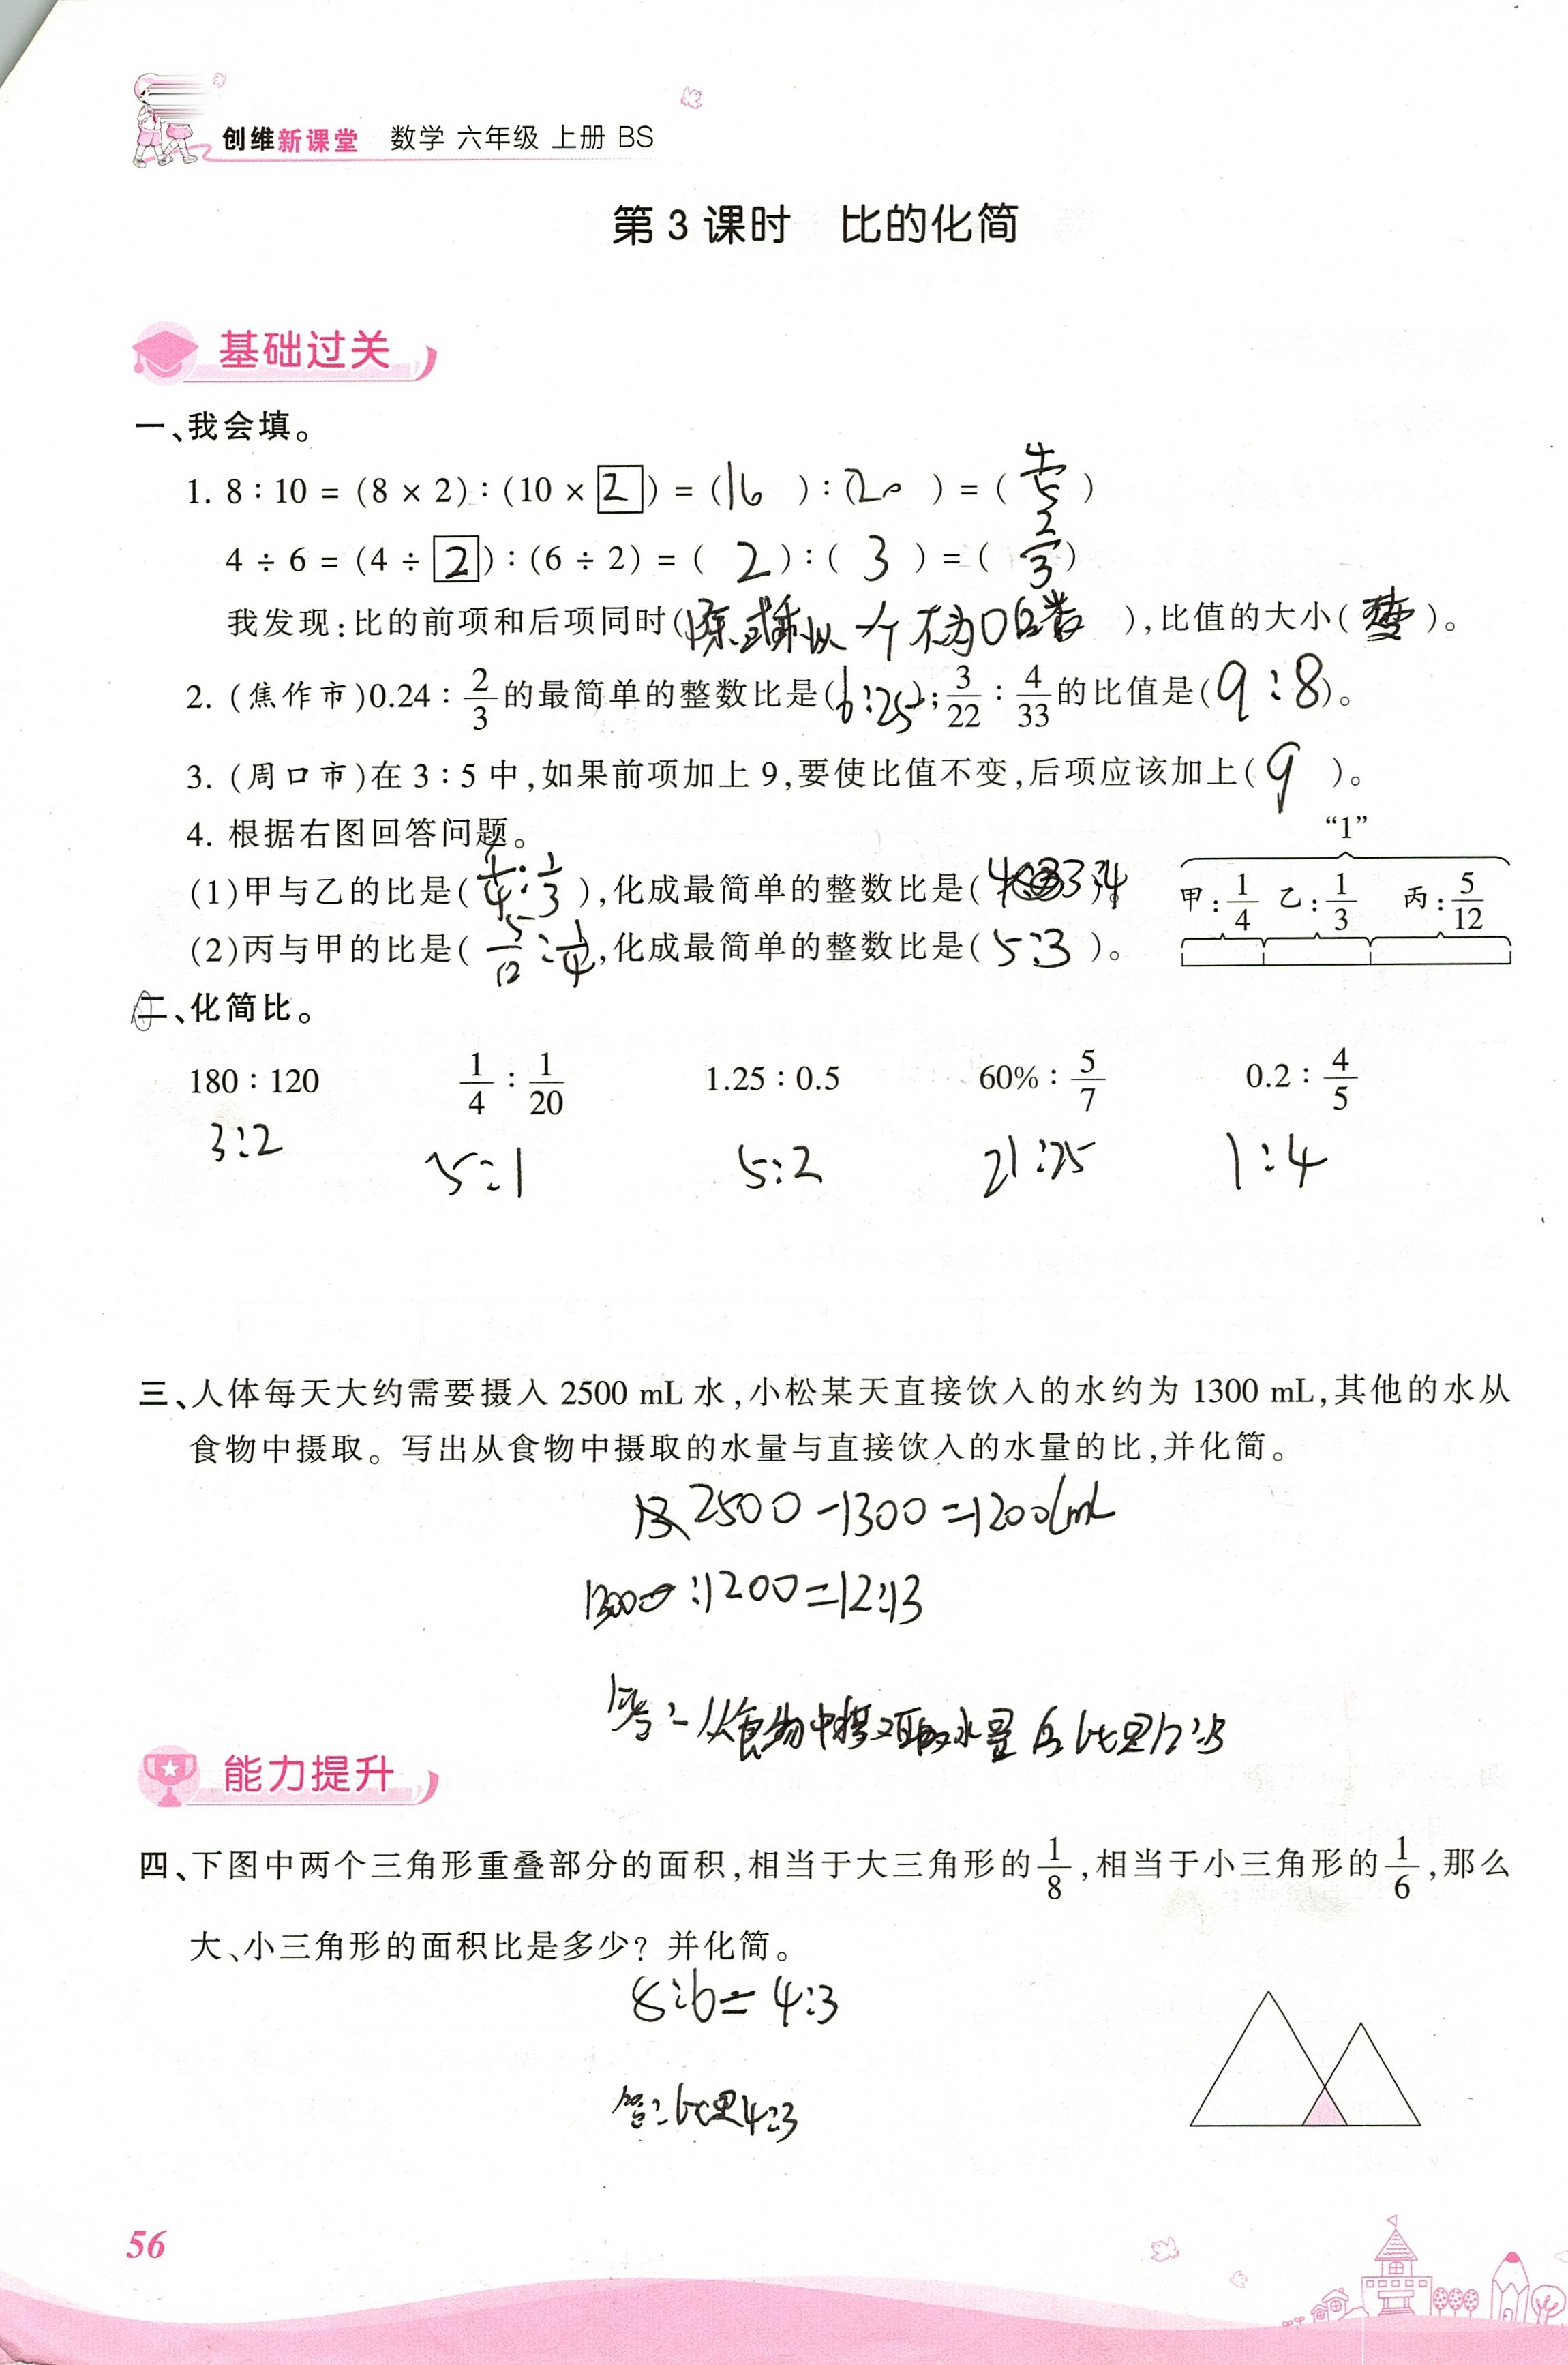 创维新课堂 数学 六年级 上册 BS
第 3 课时 比的化简
基础过关
一、我会填。
1. 8∶10 = (8 × 2)∶(10 × 2) = (16)∶(20) = (4/5)
4 ÷ 6 = (4 ÷ 2)∶(6 ÷ 2) = (2)∶(3) = (2/3)
我发现:比的前项和后项同时(除或乘以一个不为0的数),比值的大小( )。
2. (焦作市)0.24∶2/3的最简单的整数比是(6:25);3/22∶4/33的比值是(9:8)。
3. (周口市)在 3∶5 中,如果前项加上 9,要使比值不变,后项应该加上(9)。
4. 根据右图回答问题。
“1”
(1)甲与乙的比是(1/4:1/3),化成最简单的整数比是(3:4)。
甲:1/4 乙:1/3 丙:5/12
(2)丙与甲的比是(5/12:1/4),化成最简单的整数比是(5:3)。
二、化简比。
180∶120 1/4∶1/20 1.25∶0.5 60%∶5/7 0.2∶4/5
3:2 5:1 5:2 21:25 1:4
三、人体每天大约需要摄入 2500 mL 水,小松某天直接饮入的水约为 1300 mL,其他的水从
食物中摄取。写出从食物中摄取的水量与直接饮入的水量的比,并化简。
2500-1300=1200(mL
:1200=12:13
答:从食物中摄取水量的比是12:13
能力提升
四、下图中两个三角形重叠部分的面积,相当于大三角形的1/8,相当于小三角形的1/6,那么
大、小三角形的面积比是多少? 并化简。
8:6=4:3
答:比是4:3
56